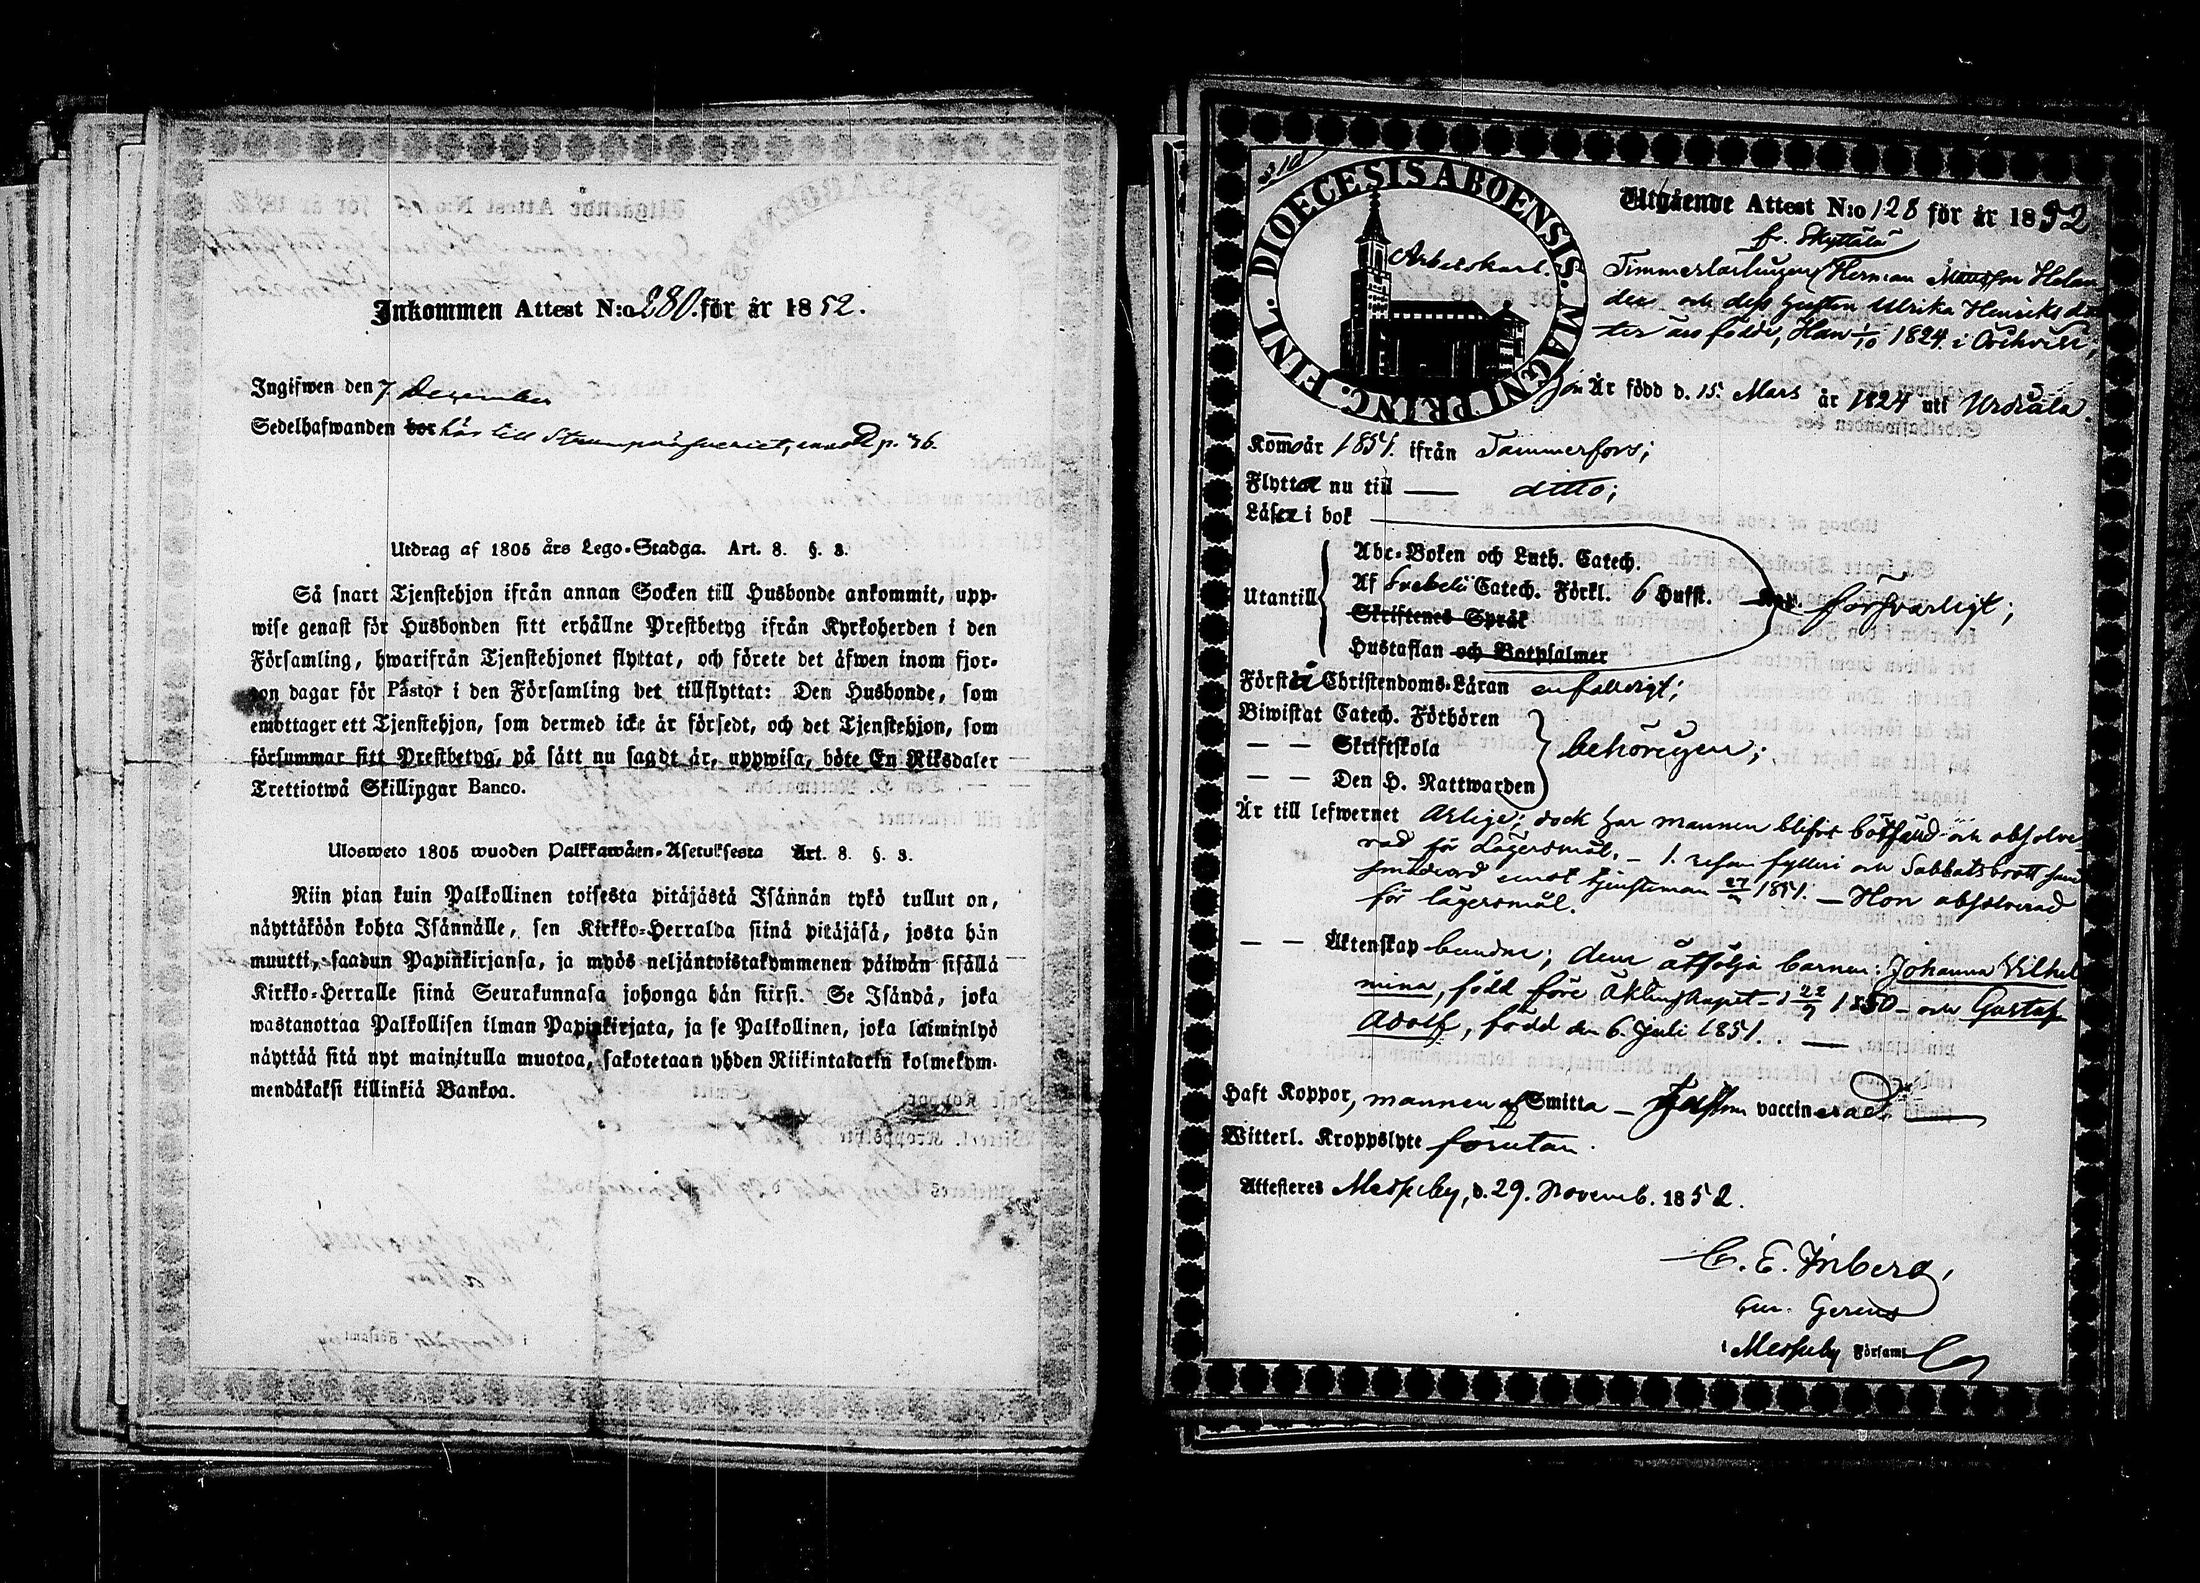 Inkommen Attest N:o 280. för år 1852.
Ingifwen den 7 December
Sedelhafwanden bor här till
p. 46.
Utdrag af 1805 års Lego-Stadga. Art. 8. §. 3.
Så snart Tjenstehjon ifrån annan Socken till Husbonde ankommit, upp-
wise genast för Husbonden sitt erhållne Prestbetyg ifrån Kyrkoherden i den
Församling, hwarifrån Tjenstehjonet flyttat, och förete det äfwen inom fjor-
ton dagar för Pastor i den Församling det tillflyttat: Den Husbonde, som
emottager ett Tjenstehjon, som dermed icke är försedt, och det Tjenstehjon, som
försummar sitt Prestbetyg, på sätt nu sagdt är, uppwisa, böte En Riksdaler
Trettiotwå Skillingar Banco.
Ulosweto 1805 wuoden Palkkawäen-Asetuksesta Art. 8. §. 3.
Niin pian kuin Palkollinen toisesta pitäjästä Isännän tykö tullut on,
näyttäköön kohta Isännälle, sen Kirkko-Herralda siinä pitäjäsä, josta hän
muutti, saadun Papinkirjansa, ja myös neljäntoistakymmenen päiwän sisällä
Kirkko-Herralle siinä Seurakunnasa johonga hän siirsi. Se Isändä, joka
wastanottaa Palkollisen ilman Papinkirjata, ja se Palkollinen, joka laiminlyö
näyttää sitä nyt mainitulla muotoa, sakotetaan yhden Riikintalarin kolmekym-
mendäkaksi killinkiä Bankoa.
DIOECESIS ABOENSIS. MAGNI PRINC. FINL.
Arbetskarl.
Utgående Attest N:o 128 för år 1852
fr. Skyttälä
Timmerlärlingen Herman Mattsson Helan
der och dess hustru Ulrika Henriksdot
ter äro födde, Han 1/10 1824 i Orihvesi,
Hon Är född d. 15. Mars år 1824 uti Urdiala.
Kommo år 1851. ifrån Tammerfors;
Flytta nu till — ditto;
Läsa i bok
Utantill
Abc-Boken och Luth. Catech.
Af Svebelii Catech. Förkl. 6 Hufst. försvarligt;
Skriftenes Språk
Hustaflan och Botpsalmer
Förstå Christendoms-Läran enfaldigt;
Biwistat Catech. Förhören
— — Skriftskola behörigen;
— — Den H. Nattwarden
Är till lefwernet ärlige; dock har mannen blifvit bötfälld och absolve-
rad för Lägersmål, — 1. resan fylleri och Sabbatsbrott samt
smädeord emot tjensteman 1851. — Hon absolverad
för lägersmål.
— — Äktenskap bundne; dem åtfölja barnen: Johanna Vilhel
mina, född före Äktenskapet d 1850 — och Gustaf
Adolf, född den 6. Juli 1851. —
Haft Koppor, mannen af Smitta — hustrun vaccinerad.
Witterl. Kroppslyte förutan.
Attesteras Messuby, d. 29. Novemb. 1852.
C. E. Inberg,
Cur. Gerens
i Messuby Församl